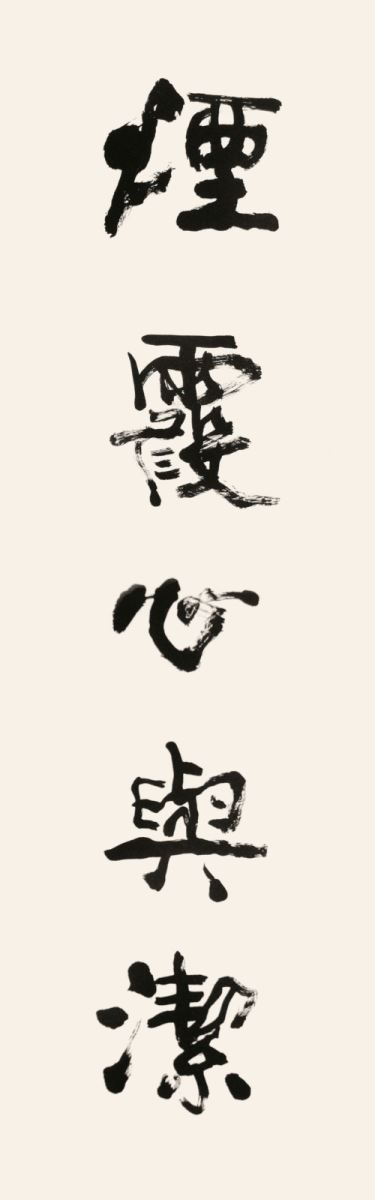 煙霞心與潔